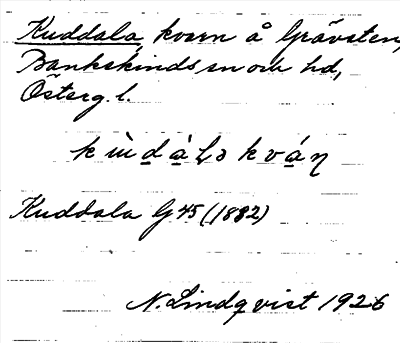 Kuddala, kvarn å Grävsten,
Bankekinds sn och hd,
Österg. l.
kùdàLə kván
Kuddala G45 (1882)
N. Lindqvist 1926